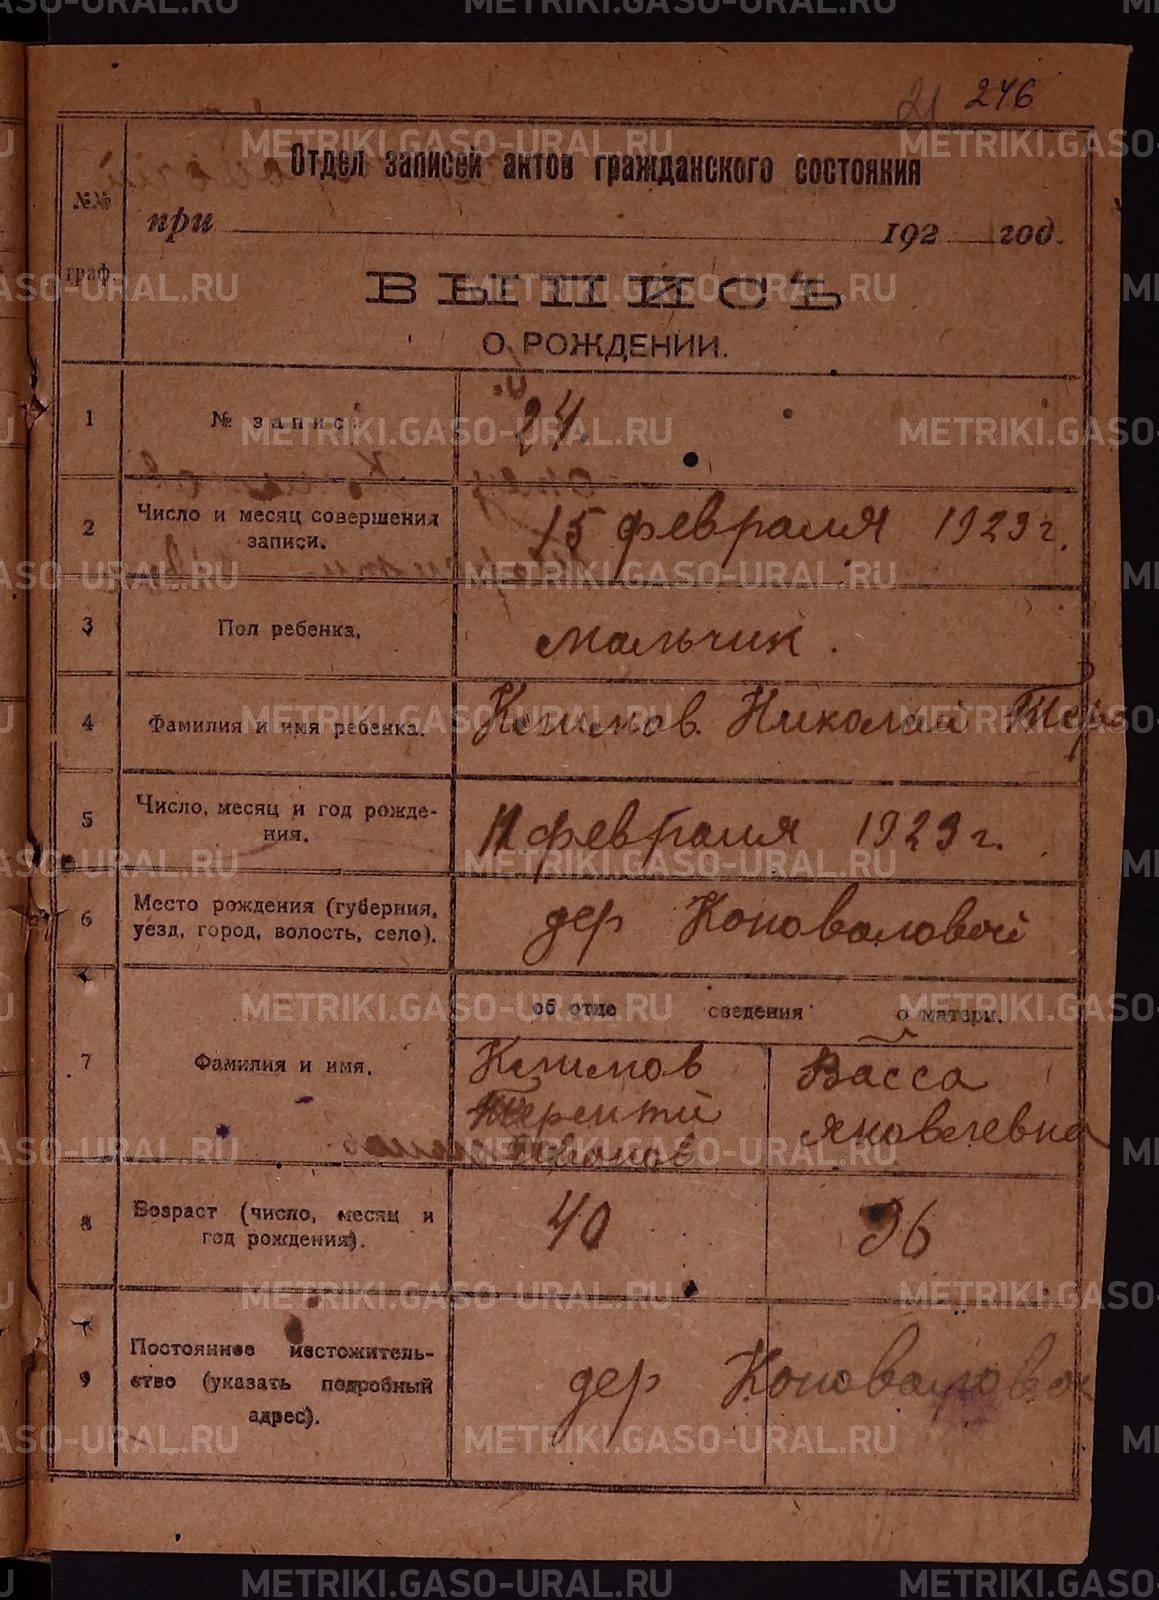 21 276
Отдел записей актов гражданского состояния
№№ граф.
при 192 год.
ВЫПИСЬ
О РОЖДЕНИИ.
1 № записи 24.
2 Число и месяц совершения записи. 15 февраля 1923 г.
3 Пол ребенка. мальчик.
4 Фамилия и имя ребенка. Климов Николай Тер
5 Число, месяц и год рожде-
ния. 11 февраля 1923 г.
6 Место рождения (губерния,
уезд, город, волость, село). дер Коноваловой
об отце сведения о матери.
7 Фамилия и имя. Климов
Терентий
Иванов
Васса
Яковлевна
8 Возраст (число, месяц и
год рождения). 40 36
9 Постоянное местожитель-
ство (указать подробный
адрес). дер Коноваловой
METRIKI.GASO-URAL.RU